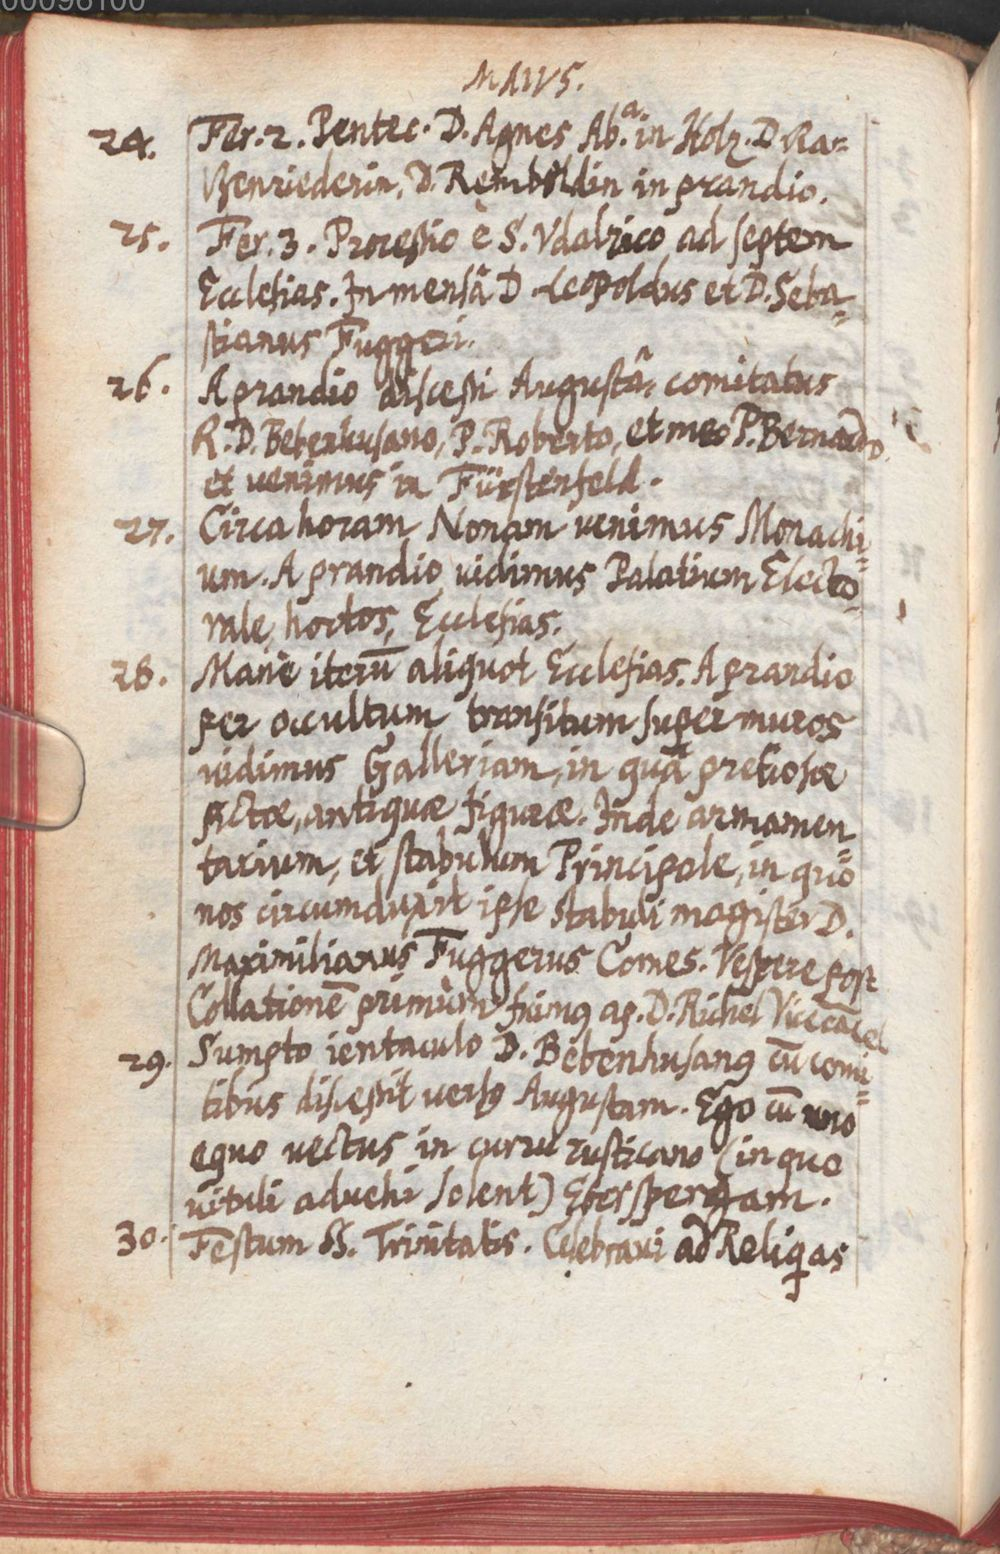 00098100
MAIVS.
24. Fer. 2. Pentec. D. Agnes Ab.a in Holz. D Ra=
ßenriederin, D. Remboldin in prandio.
25. Fer. 3. Processio è S. Vdalrico ad septem
Ecclesias. In mensâ D. Leopoldus et D. Seba=
stianus Fuggeri.
26. A prandio discessi Augustâ, comitatus
R. D. Bebenhusano, P. Roberto, et meo P. Bernardo
et venimus in Fürstenfeld.
27. Circa horam Nonam venimus Monachi=
um. A prandio vidimus Palatium Electo=
rale, hortos, Ecclesias.
28. Manè iterū aliquot Ecclesias. A prandio
per occultum transitum super muros
vidimus Galleriam, in quâ pretiosæ
pictæ, antiquæ figuræ. Inde armamen=
tarium, et stabulum Principale, in quo
nos circumduxit ipse stabuli magister D.
Maximilianus Fuggerus Comes. Vespere post
Collationē primùm fuimꝰ ap. D. Richel Vicecācel
29. Sumpto ientaculo D. Bebenhusanꝰ cū comi=
tibus discessit versꝰ Augustam. Ego cū uno
equo vectus in curru rusticano (in quo
vituli aduehi solent) Eberspergam.
30. Festum SS. Trinitatis. Celebraui ad Reliqias